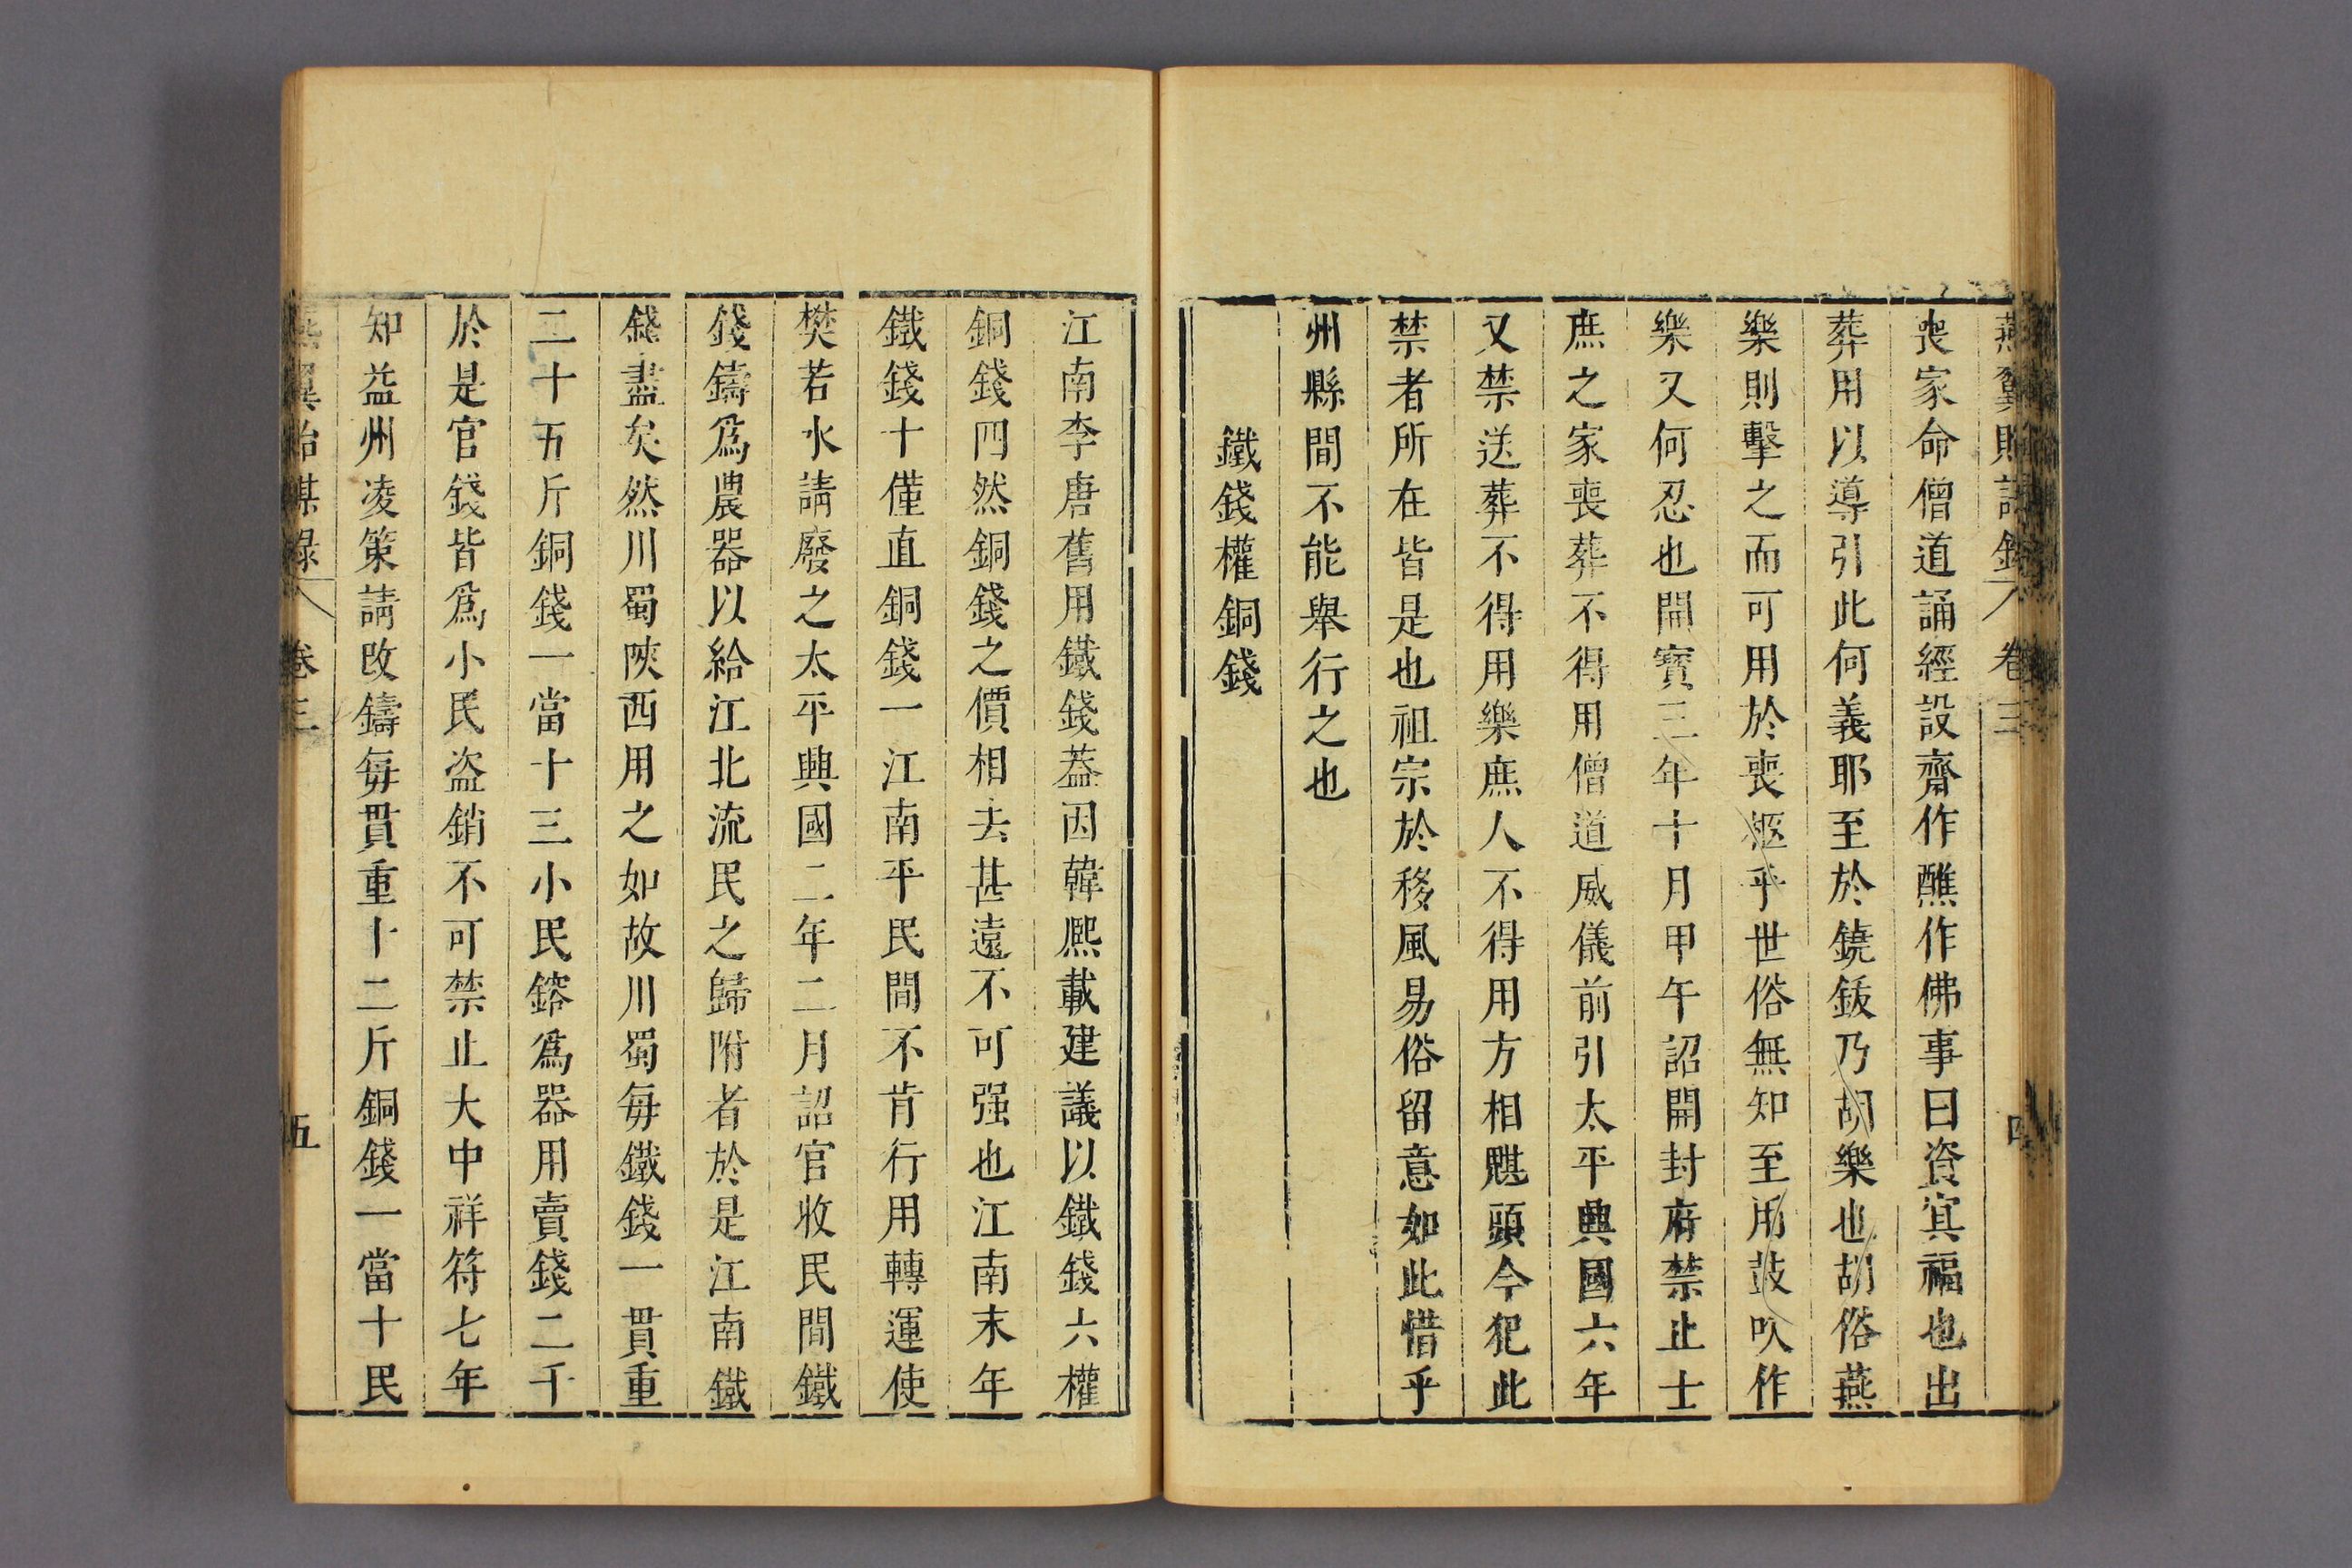 燕翼貽謀錄 卷三 四
喪家命僧道誦經設齋作醮作佛事曰資冥福也出
葬用以導引此何義耶至於鐃鈸乃胡樂也胡俗燕
樂則擊之而可用於喪柩乎世俗無知至用鼓吹作
樂又何忍也開寶三年十月甲午詔開封府禁止士
庶之家喪葬不得用僧道威儀前引太平興國六年
又禁送葬不得用樂庶人不得用方相魌頭今犯此
禁者所在皆是也祖宗於移風易俗留意如此惜乎
州縣間不能舉行之也
鐵錢權銅錢
江南李唐舊用鐵錢葢因韓熈載建議以鐵錢六權
銅錢四然銅錢之價相去甚遠不可强也江南末年
鐵錢十僅直銅錢一江南平民間不肯行用轉運使
樊若水請廢之太平興國二年二月詔官收民間鐵
錢鑄爲農器以給江北流民之歸附者於是江南鐵
錢盡矣然川蜀陝西用之如故川蜀每鐵錢一貫重
二十五斤銅錢一當十三小民鎔爲器用賣錢二千
於是官錢皆爲小民盗銷不可禁止大中祥符七年
知益州凌策請改鑄每貫重十二斤銅錢一當十民
燕翼貽謀錄 卷三 五